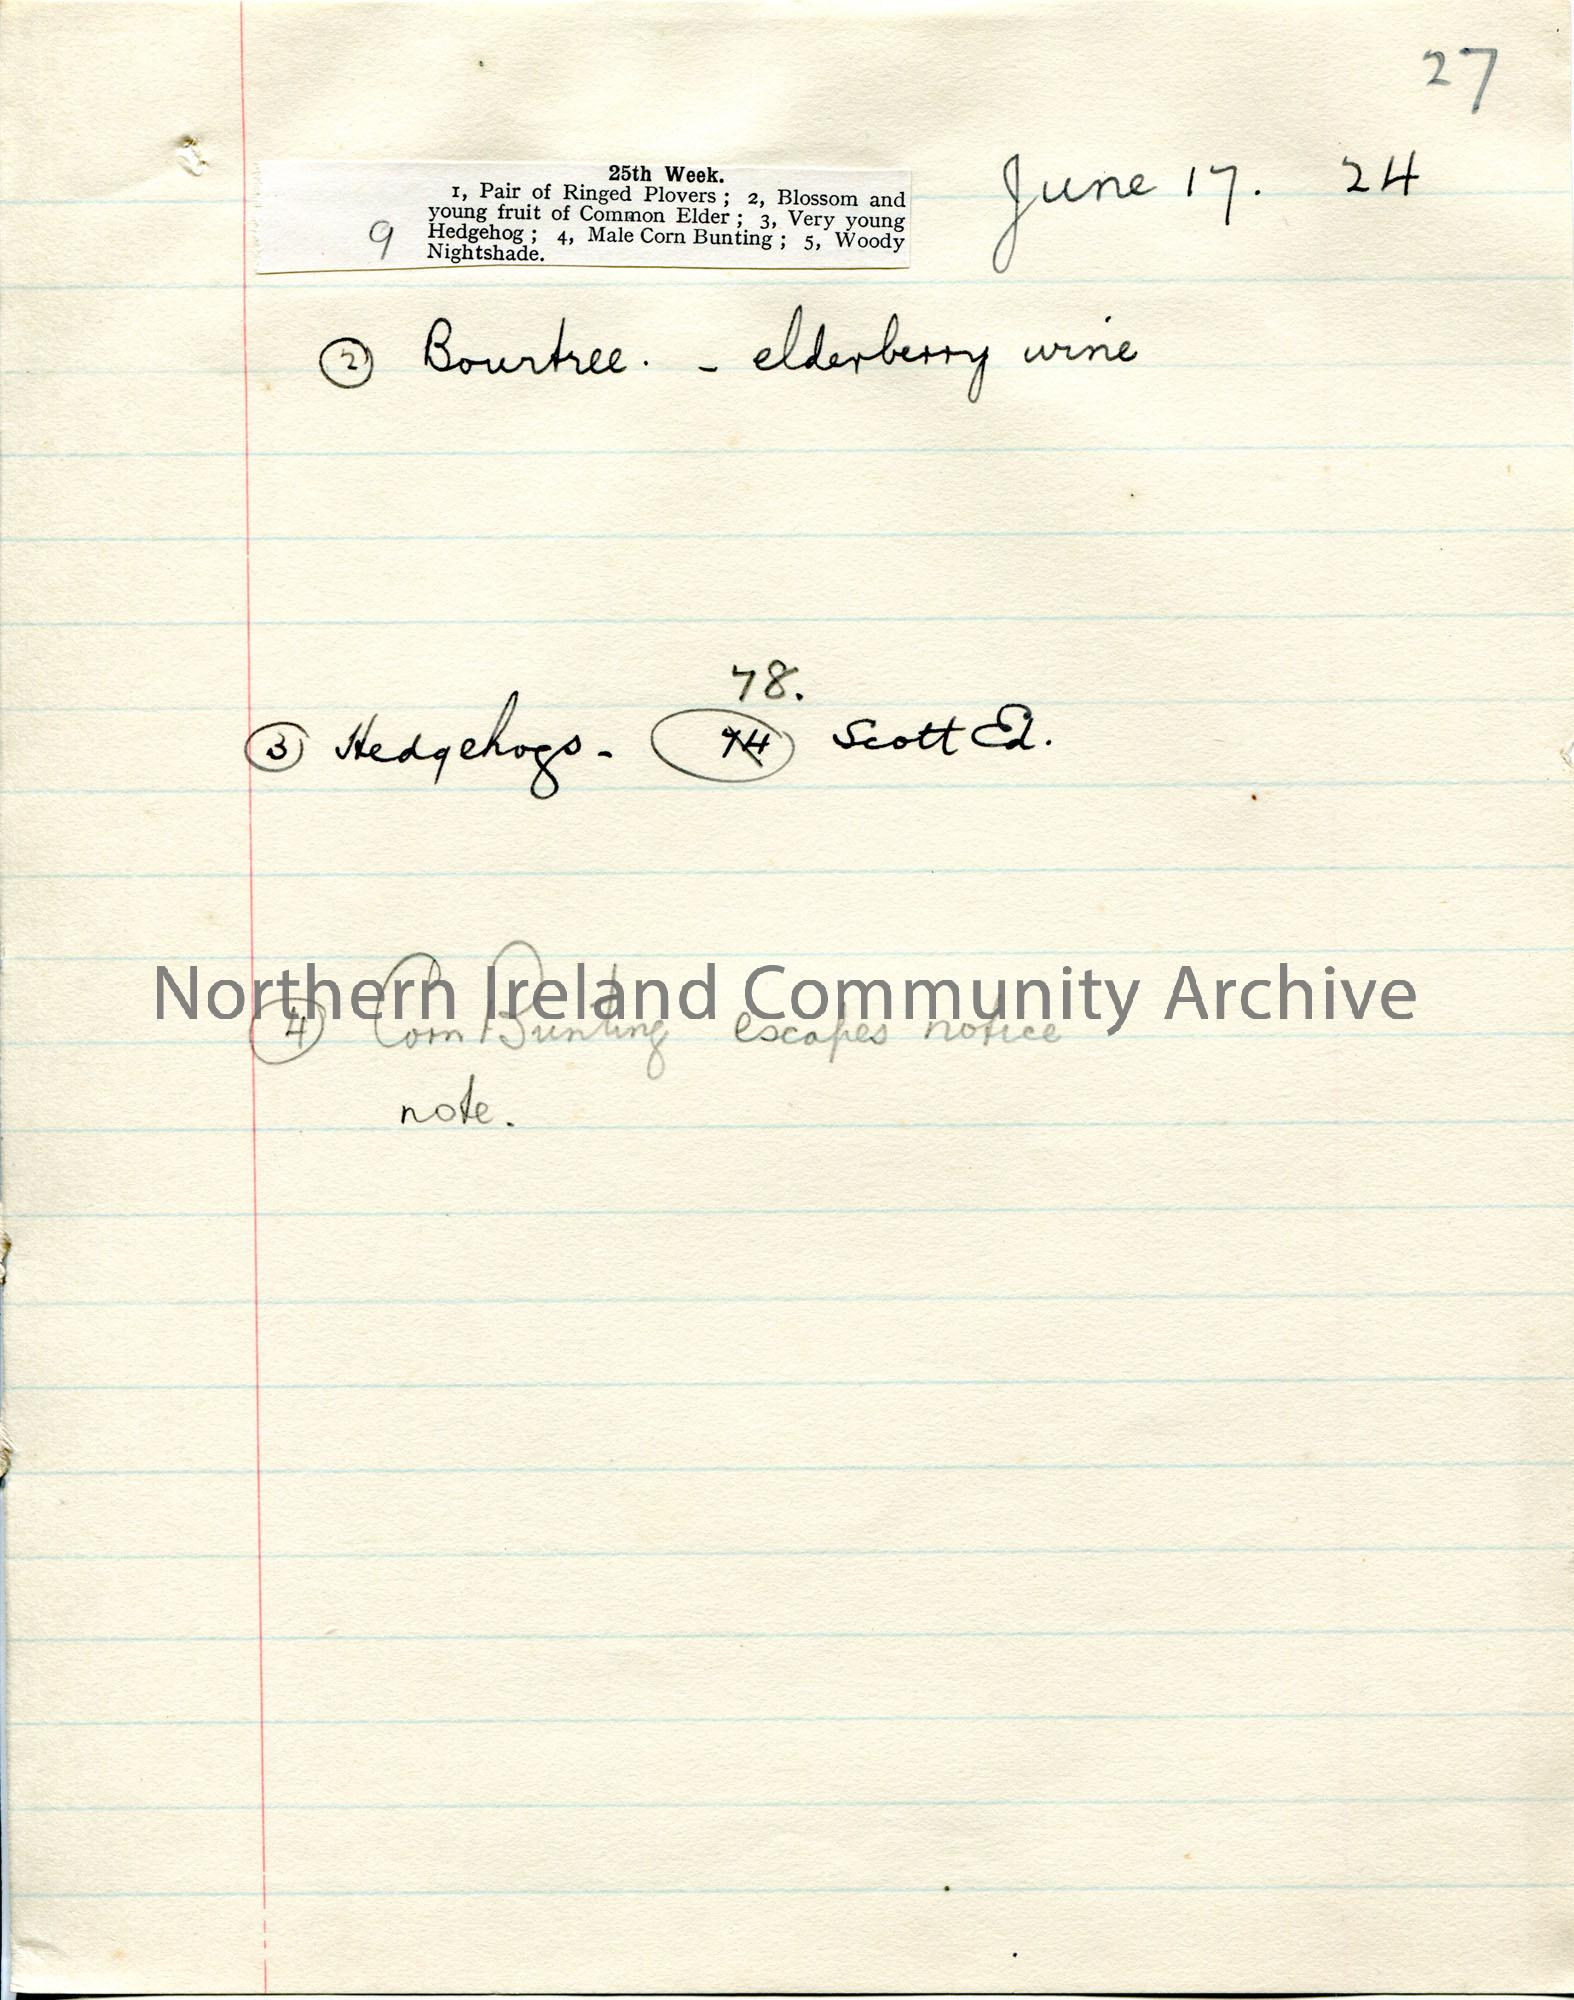 27
25th Week.
1, Pair of Ringed Plovers ; 2, Blossom and
young fruit of Common Elder ; 3, Very young
Hedgehog ; 4, Male Corn Bunting ; 5, Woody
Nightshade.
9
June 17. 24
2 Bourtree. - elderberry wine
78.
3 Hedgehogs - 74 Scott Ed.
Northern Ireland Community Archive
4 Corn Bunting escapes notice
note.